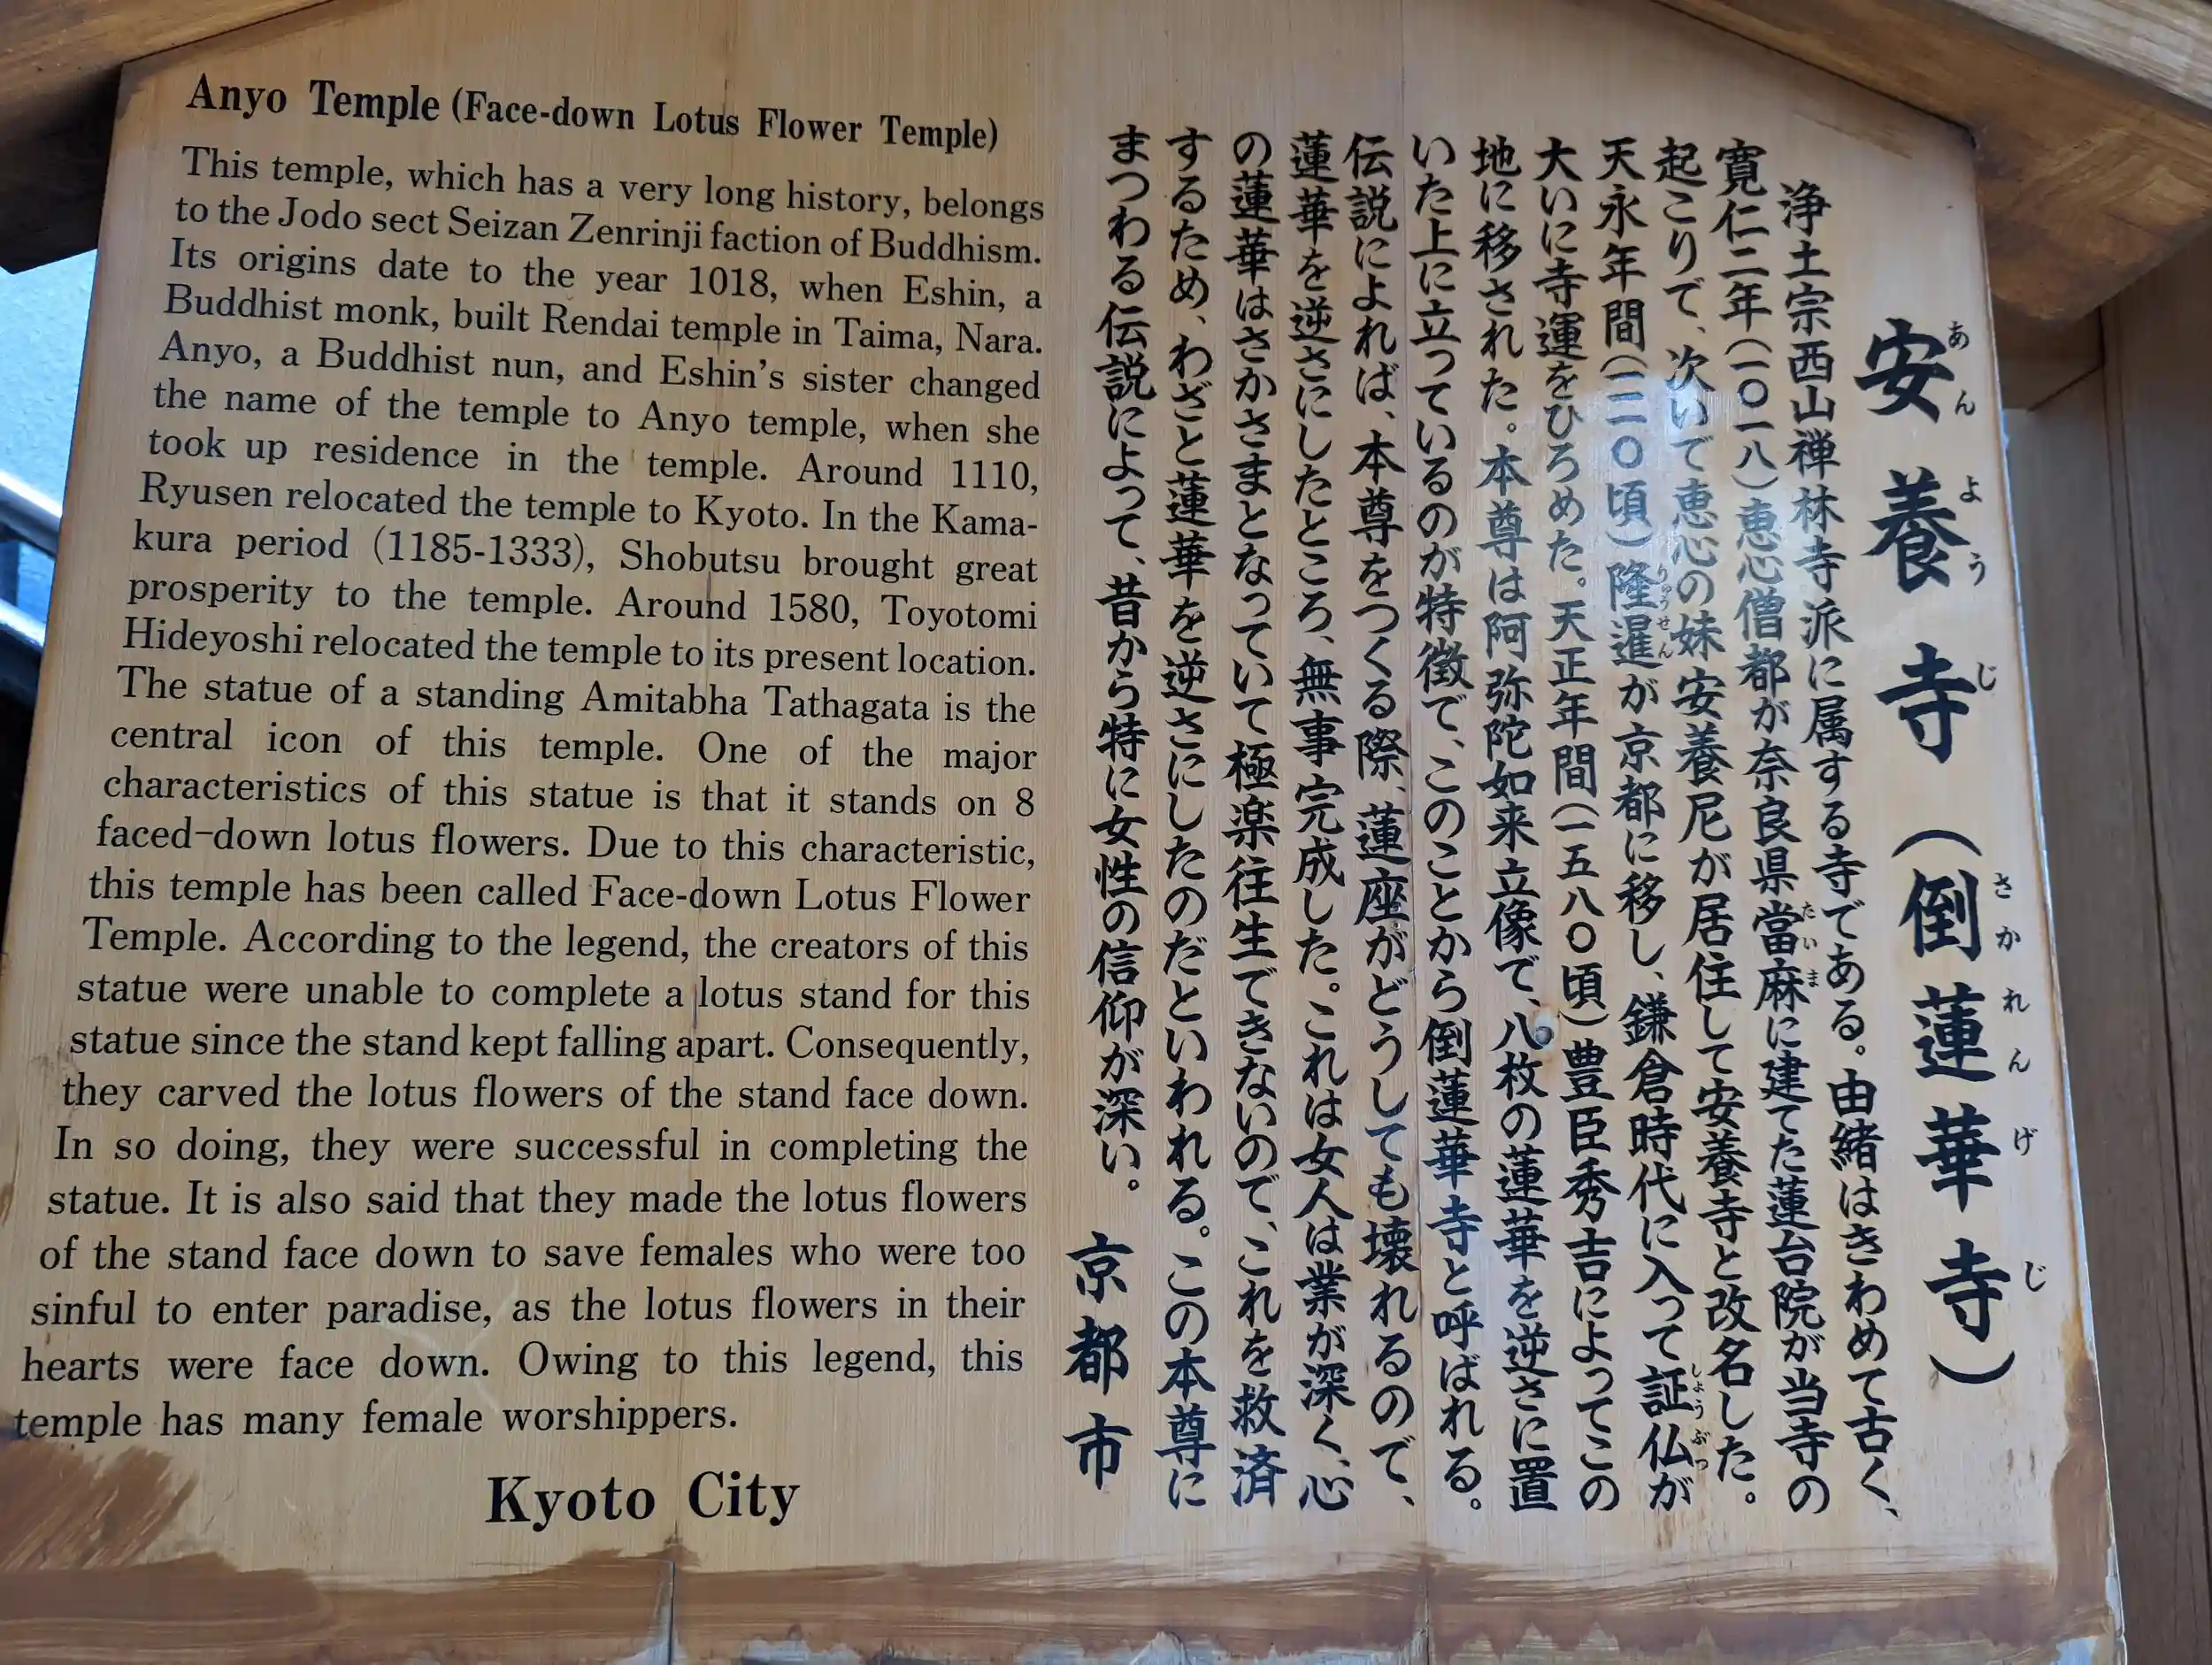 Anyo Temple (Face-down Lotus Flower Temple)
This temple, which has a very long history, belongs
to the Jodo sect Seizan Zenrinji faction of Buddhism.
Its origins date to the year 1018, when Eshin, a
Buddhist monk, built Rendai temple in Taima, Nara.
Anyo, a Buddhist nun, and Eshin's sister changed
the name of the temple to Anyo temple, when she
took up residence in the temple. Around 1110,
Ryusen relocated the temple to Kyoto. In the Kama-
kura period (1185-1333), Shobutsu brought great
prosperity to the temple. Around 1580, Toyotomi
Hideyoshi relocated the temple to its present location.
The statue of a standing Amitabha Tathagata is the
central icon of this temple. One of the major
characteristics of this statue is that it stands on 8
faced-down lotus flowers. Due to this characteristic,
this temple has been called Face-down Lotus Flower
Temple. According to the legend, the creators of this
statue were unable to complete a lotus stand for this
statue since the stand kept falling apart. Consequently,
they carved the lotus flowers of the stand face down.
In so doing, they were successful in completing the
statue. It is also said that they made the lotus flowers
of the stand face down to save females who were too
sinful to enter paradise, as the lotus flowers in their
hearts were face down. Owing to this legend, this
temple has many female worshippers.
Kyoto City
安養寺（倒蓮華寺）
あんようじ さかれんげじ
浄土宗西山禅林寺派に属する寺である。由緒はきわめて古く、
寛仁二年（一〇一八）恵心僧都が奈良県當麻に建てた蓮台院が当寺の
たいま
起こりで、次いで恵心の妹安養尼が居住して安養寺と改名した。
天永年間（一一一〇頃）隆暹が京都に移し、鎌倉時代に入って証仏が
りゅうせん しょうぶつ
大いに寺運をひろめた。天正年間（一五八〇頃）豊臣秀吉によってこの
地に移された。本尊は阿弥陀如来立像で、八枚の蓮華を逆さに置
いた上に立っているのが特徴で、このことから倒蓮華寺と呼ばれる。
伝説によれば、本尊をつくる際、蓮座がどうしても壊れるので、
蓮華を逆さにしたところ、無事完成した。これは女人は業が深く、心
の蓮華はさかさまとなっていて極楽往生できないので、これを救済
するため、わざと蓮華を逆さにしたのだといわれる。この本尊に
まつわる伝説によって、昔から特に女性の信仰が深い。
京都市